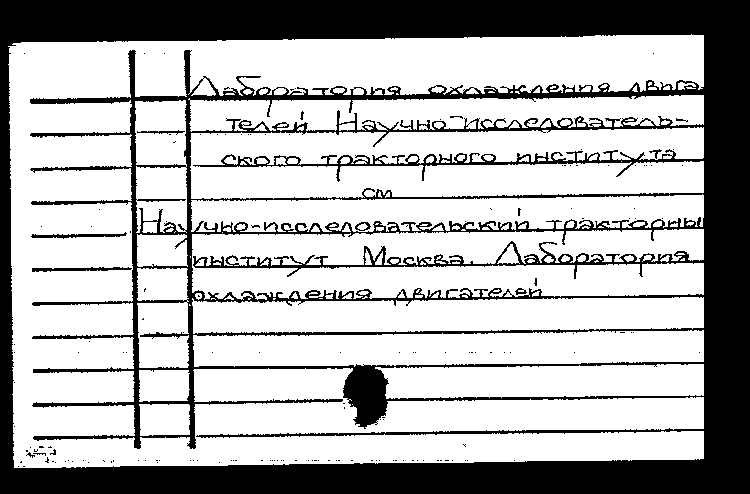 Лаборатория охлаждения двига
телей Научно-исследователь-
ского тракторного института
см
Научно-исследовательский тракторны
институт Москва. Лаборатория
охлаждения двигателей